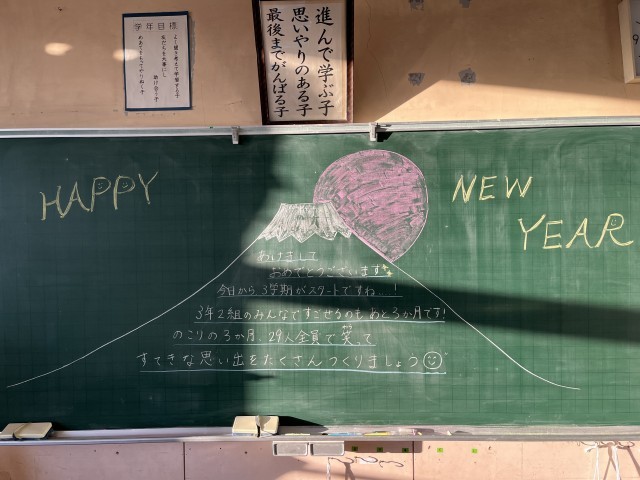 学年目標
進んで学ぶ子
思いやりのある子
最後までがんばる子
HAPPY
NEW
YEAR
あけまして
おめでとうございます
今日から3学期がスタートですね。!
3年2組のみんなですごせるのも あと3か月です!
のこりの3か月、29人全員で笑って
すてきな思い出をたくさんつくりましょう
9